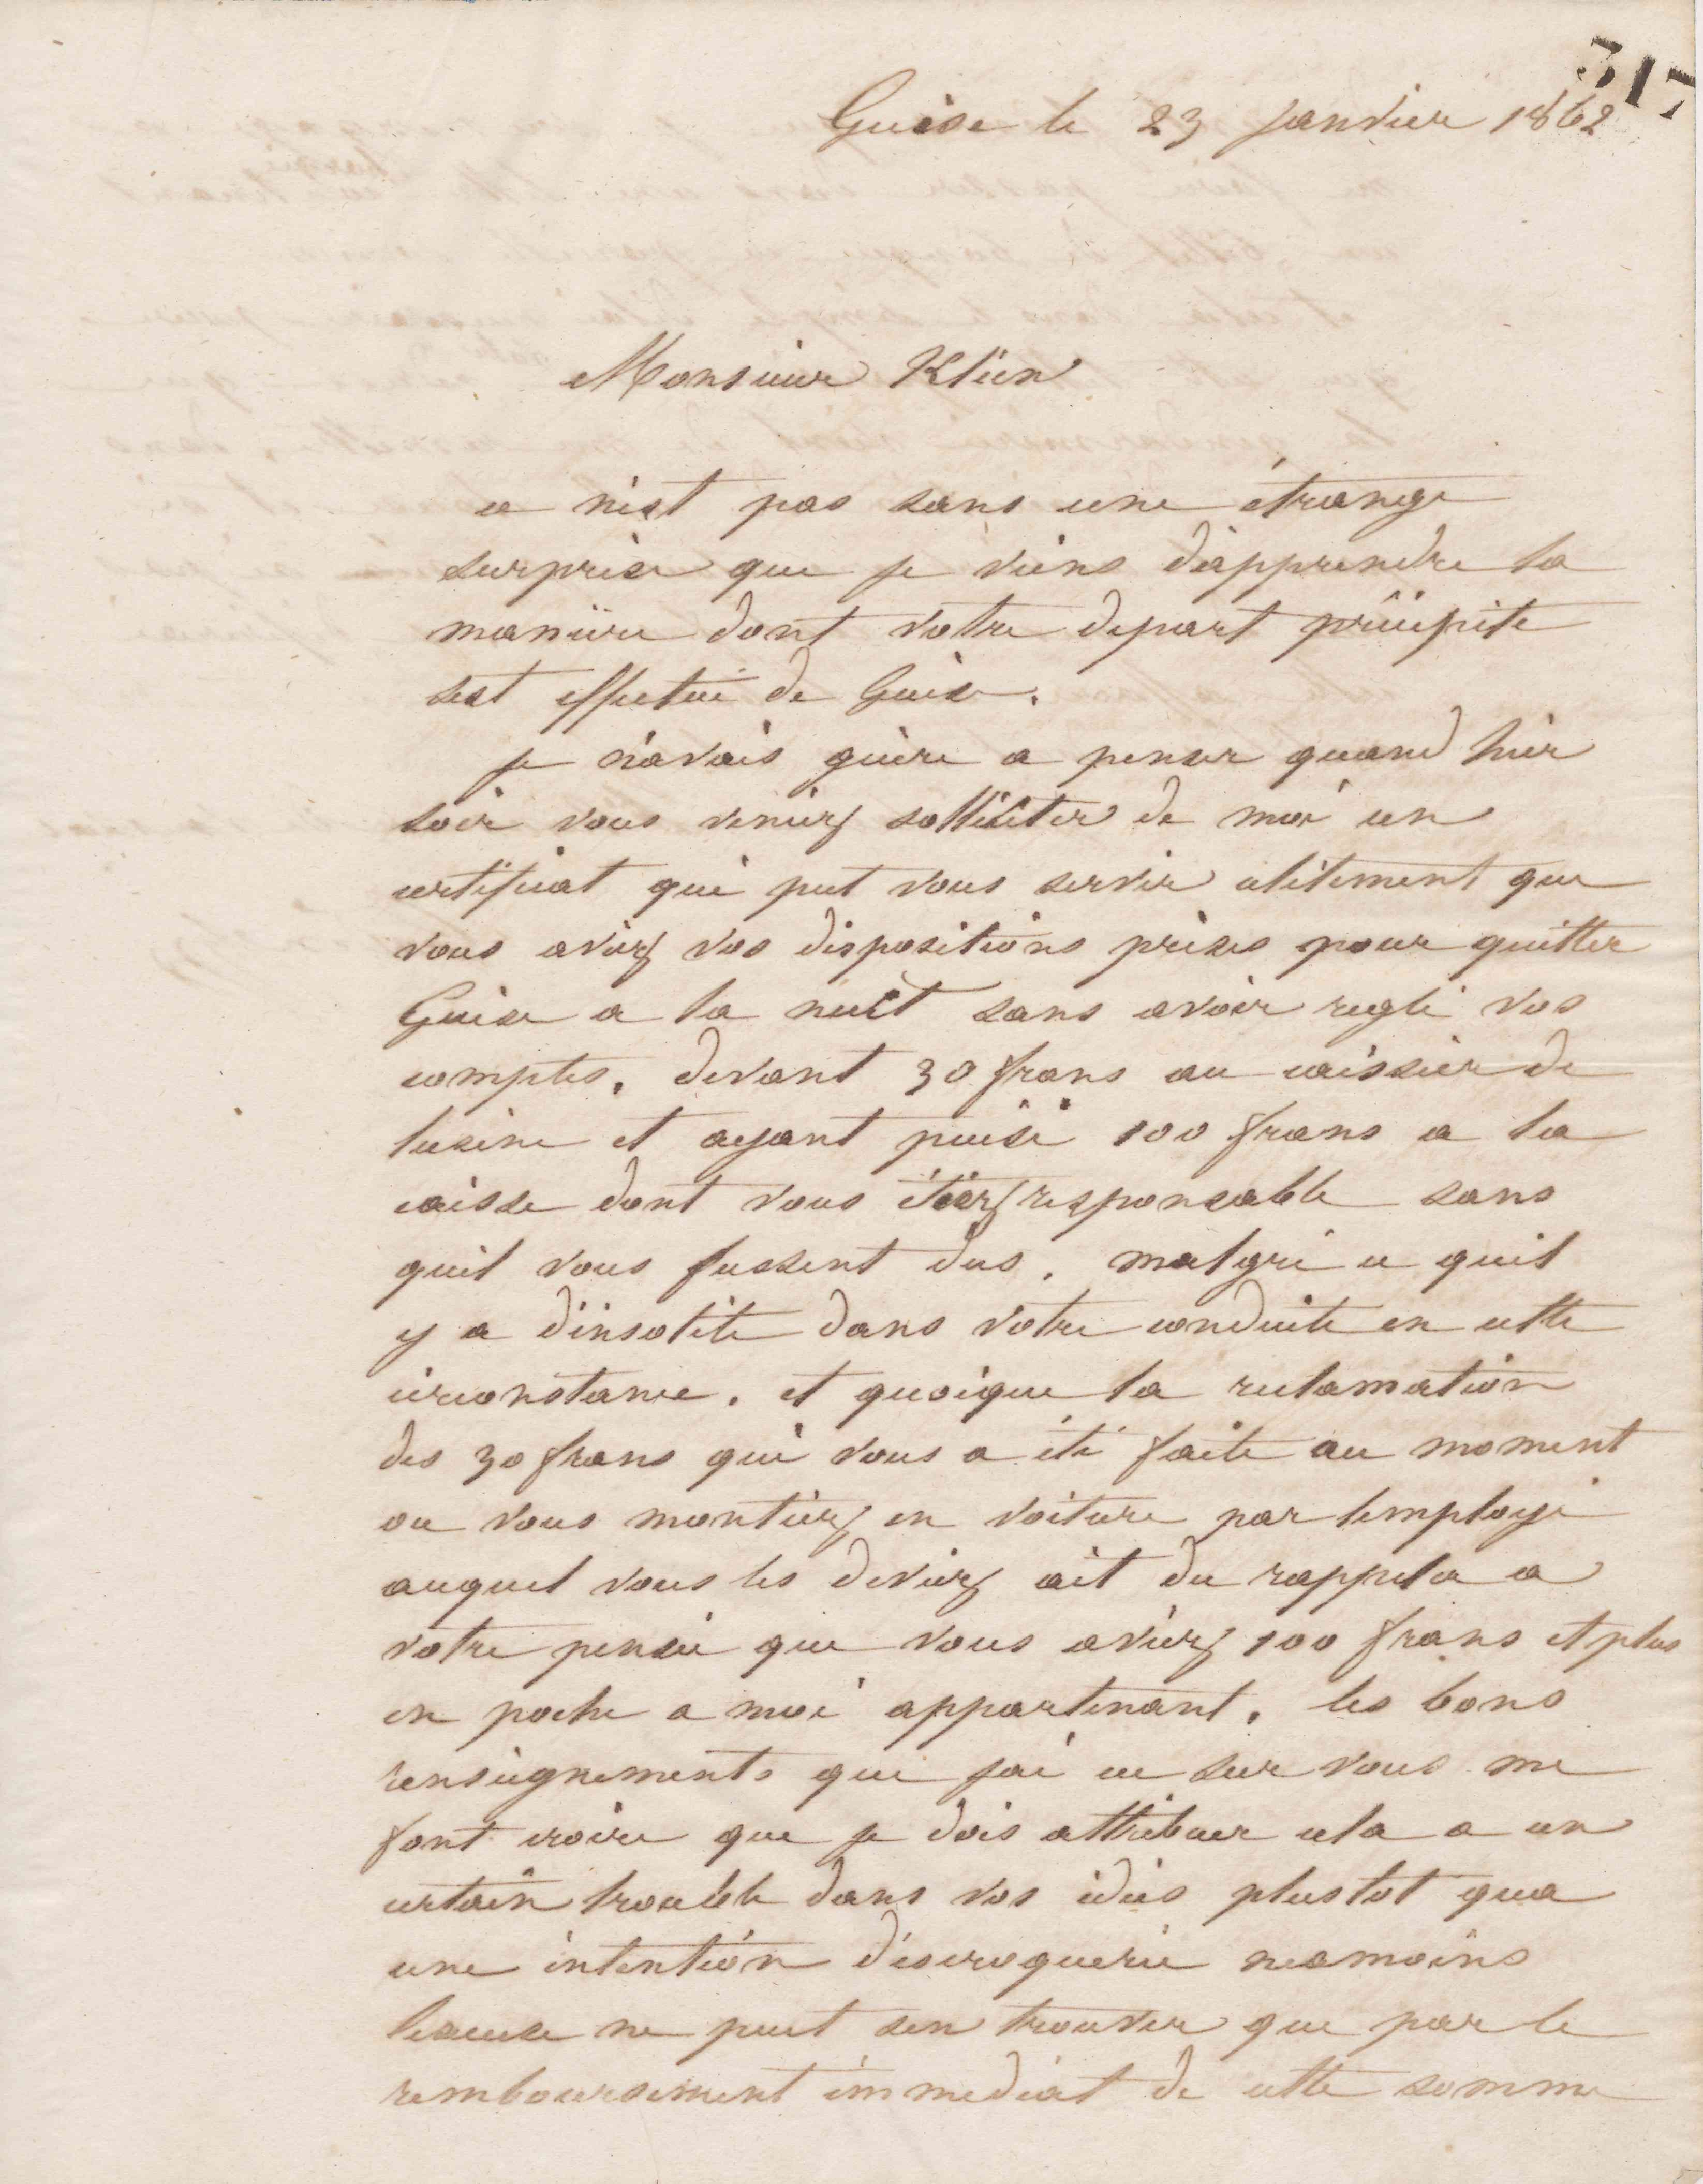 317
Guise le 23 janvier 1862
Monsieur Klein
ce n'est pas sans une étrange
surprise que je viens d'apprendre la
manière dont votre depart précipite
sest effectué de Guise.
je n'avais guère a penser quand hier
soir vous veniez solliciter de moi un
certificat qui put vous servir utilement que
vous aviez vos dispositions prises pour quitter
Guise a la nuit sans avoir reglé vos
comptes. devant 30 francs au caissier de
lusine et ayant puisé 100 francs a la
caisse dont vous étiez responsable sans
quil vous fussent dus. malgré ce quil
y a d'insolite dans votre conduite en cette
circonstance. et quoique la reclamation
des 30 francs qui vous a été faite au moment
ou vous montiez en voiture par lemployé
auquel vous les deviez ait du rappeler a
votre pensée que vous aviez 100 francs et plus
en poche a moi appartenant. les bons
renseignements que jai eu sur vous me
font croire que je dois attribuer cela a un
certain trouble dans vos idées plustot qua
une intention d'escroquerie neamoins
lexcuse ne peut sen trouver que par le
remboursement immediat de cette somme